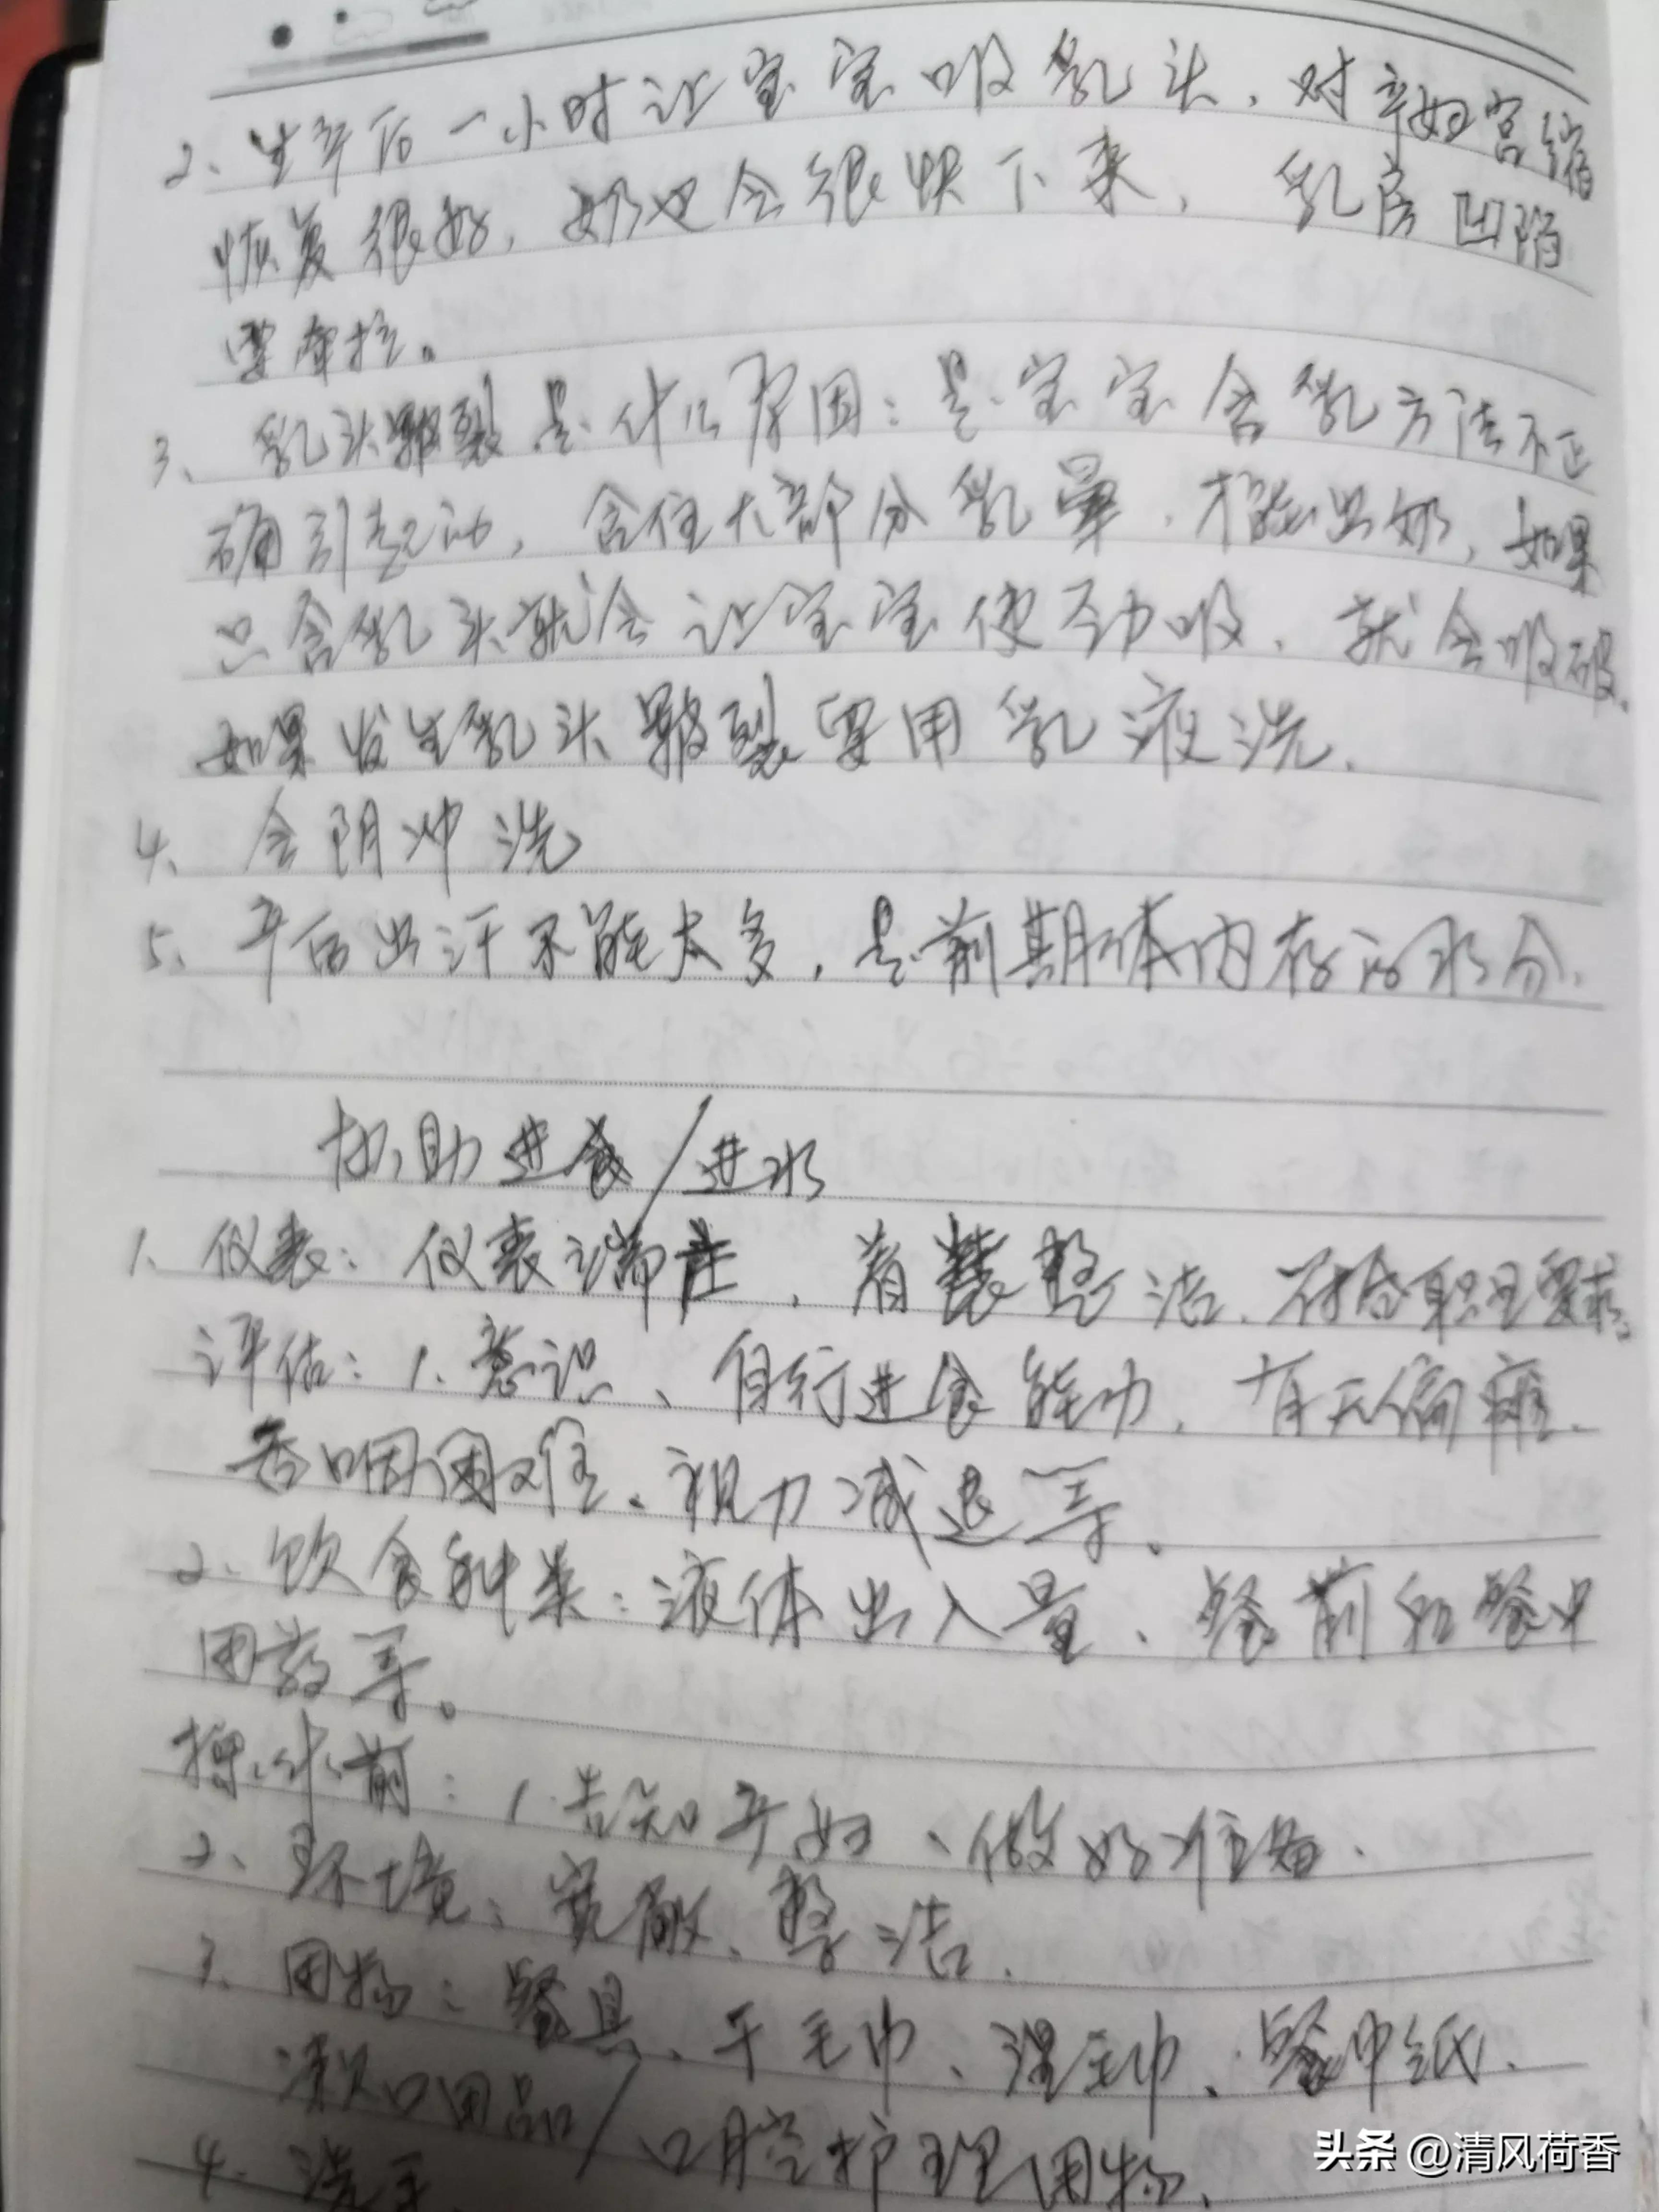 2、生产后一小时让宝宝吸乳头,对产妇宫缩
恢复很好,奶也会很快下来,乳房凹陷
要牵拉。
3、乳头皲裂是什么原因:是宝宝含乳方法不正
确引起的,含住大部分乳晕,才能出奶,如果
只含乳头就会让宝宝使劲吸,就会吸破,
如果发生乳头皲裂要用乳液洗.
4、会阴冲洗
5、产后出汗不能太多,是前期体内存的水分.
协助进食/进水
1、仪表:仪表端庄,着装整洁、符合职业要求。
评估:1、意识、自行进食能力,有无偏瘫、
吞咽困难、视力减退等。
2、饮食种类:液体出入量、餐前和餐中
用药等。
操作前:1.告知产妇、做好准备.
2、环境:宽敞、整洁.
3、用物:餐具、干毛巾、湿毛巾、餐巾纸、
漱口用品/口腔护理用物.
4、洗手
头条 @清风荷香